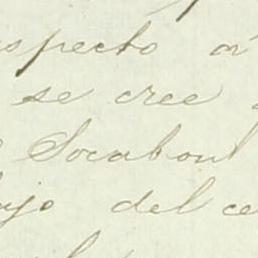 specto a
se cree
Socabon
ajo del ce